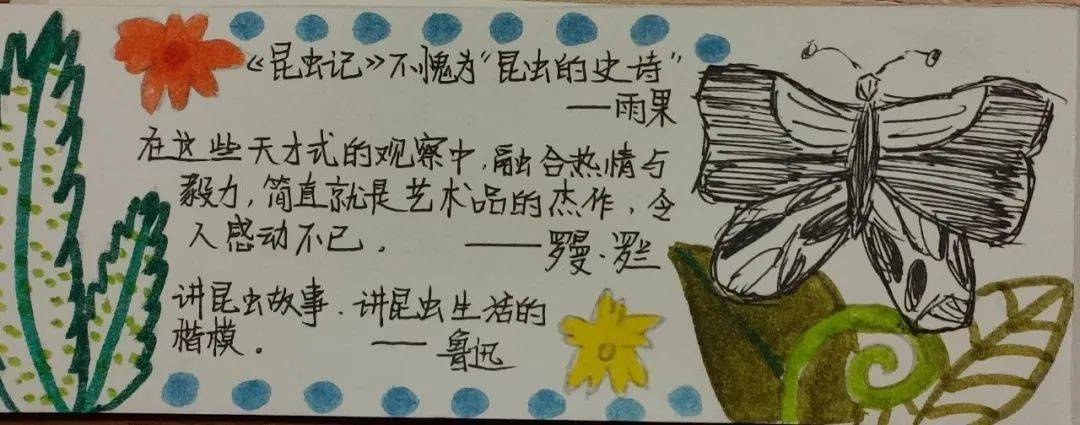 《昆虫记》不愧为“昆虫的史诗”
——雨果
在这些天才式的观察中,融合热情与
毅力,简直就是艺术品的杰作,令
人感动不已。 ——罗曼·罗兰
讲昆虫故事.讲昆虫生活的
楷模。 ——鲁迅